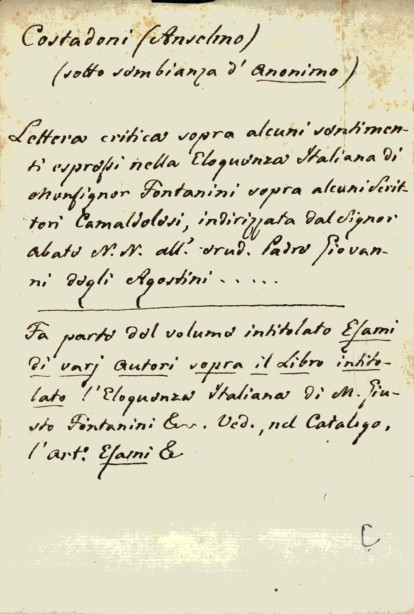 Costadoni (Anselmo)
(sotto sembianza d' Anonimo)
Lettera critica sopra alcuni sentimen-
ti espressi nella Eloquenza Italiana di
Monsignor Fontanini sopra alcuni Scrit-
tori Camaldolesi, indirizzata dal Signor
Abate N. N. all' erud. Padre Giovan-
ni degli Agostini .....
Fa parte del volume intitolato Esami
di varj Autori sopra il Libro intito-
lato l'Eloquenza Italiana di M. Giu-
sto Fontanini &c. Ved., nel Catalogo,
l'Art.o Esami &
C